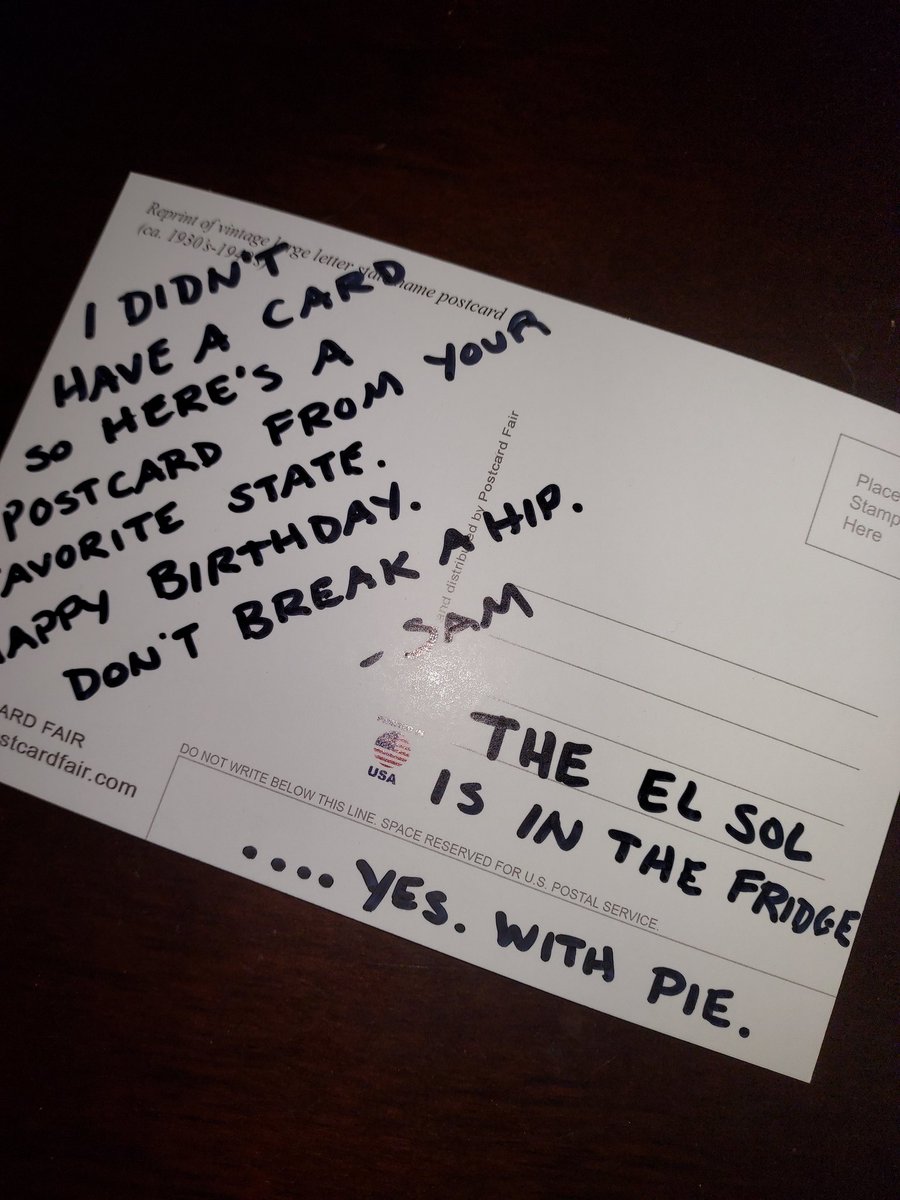 Reprint of vintage large letter state name postcard
(ca. 1930's-19
I DIDN'T
HAVE A CARD
SO HERE'S A
POSTCARD FROM YOUR
FAVORITE STATE.
HAPPY BIRTHDAY.
DON'T BREAK A HIP.
- SAM
and distributed by Postcard Fair
Place
Stamp
Here
ARD FAIR
stcardfair.com
PRINTED IN
USA
THE EL SOL
IS IN THE FRIDGE
DO NOT WRITE BELOW THIS LINE. SPACE RESERVED FOR U.S. POSTAL SERVICE.
.... YES. WITH PIE.